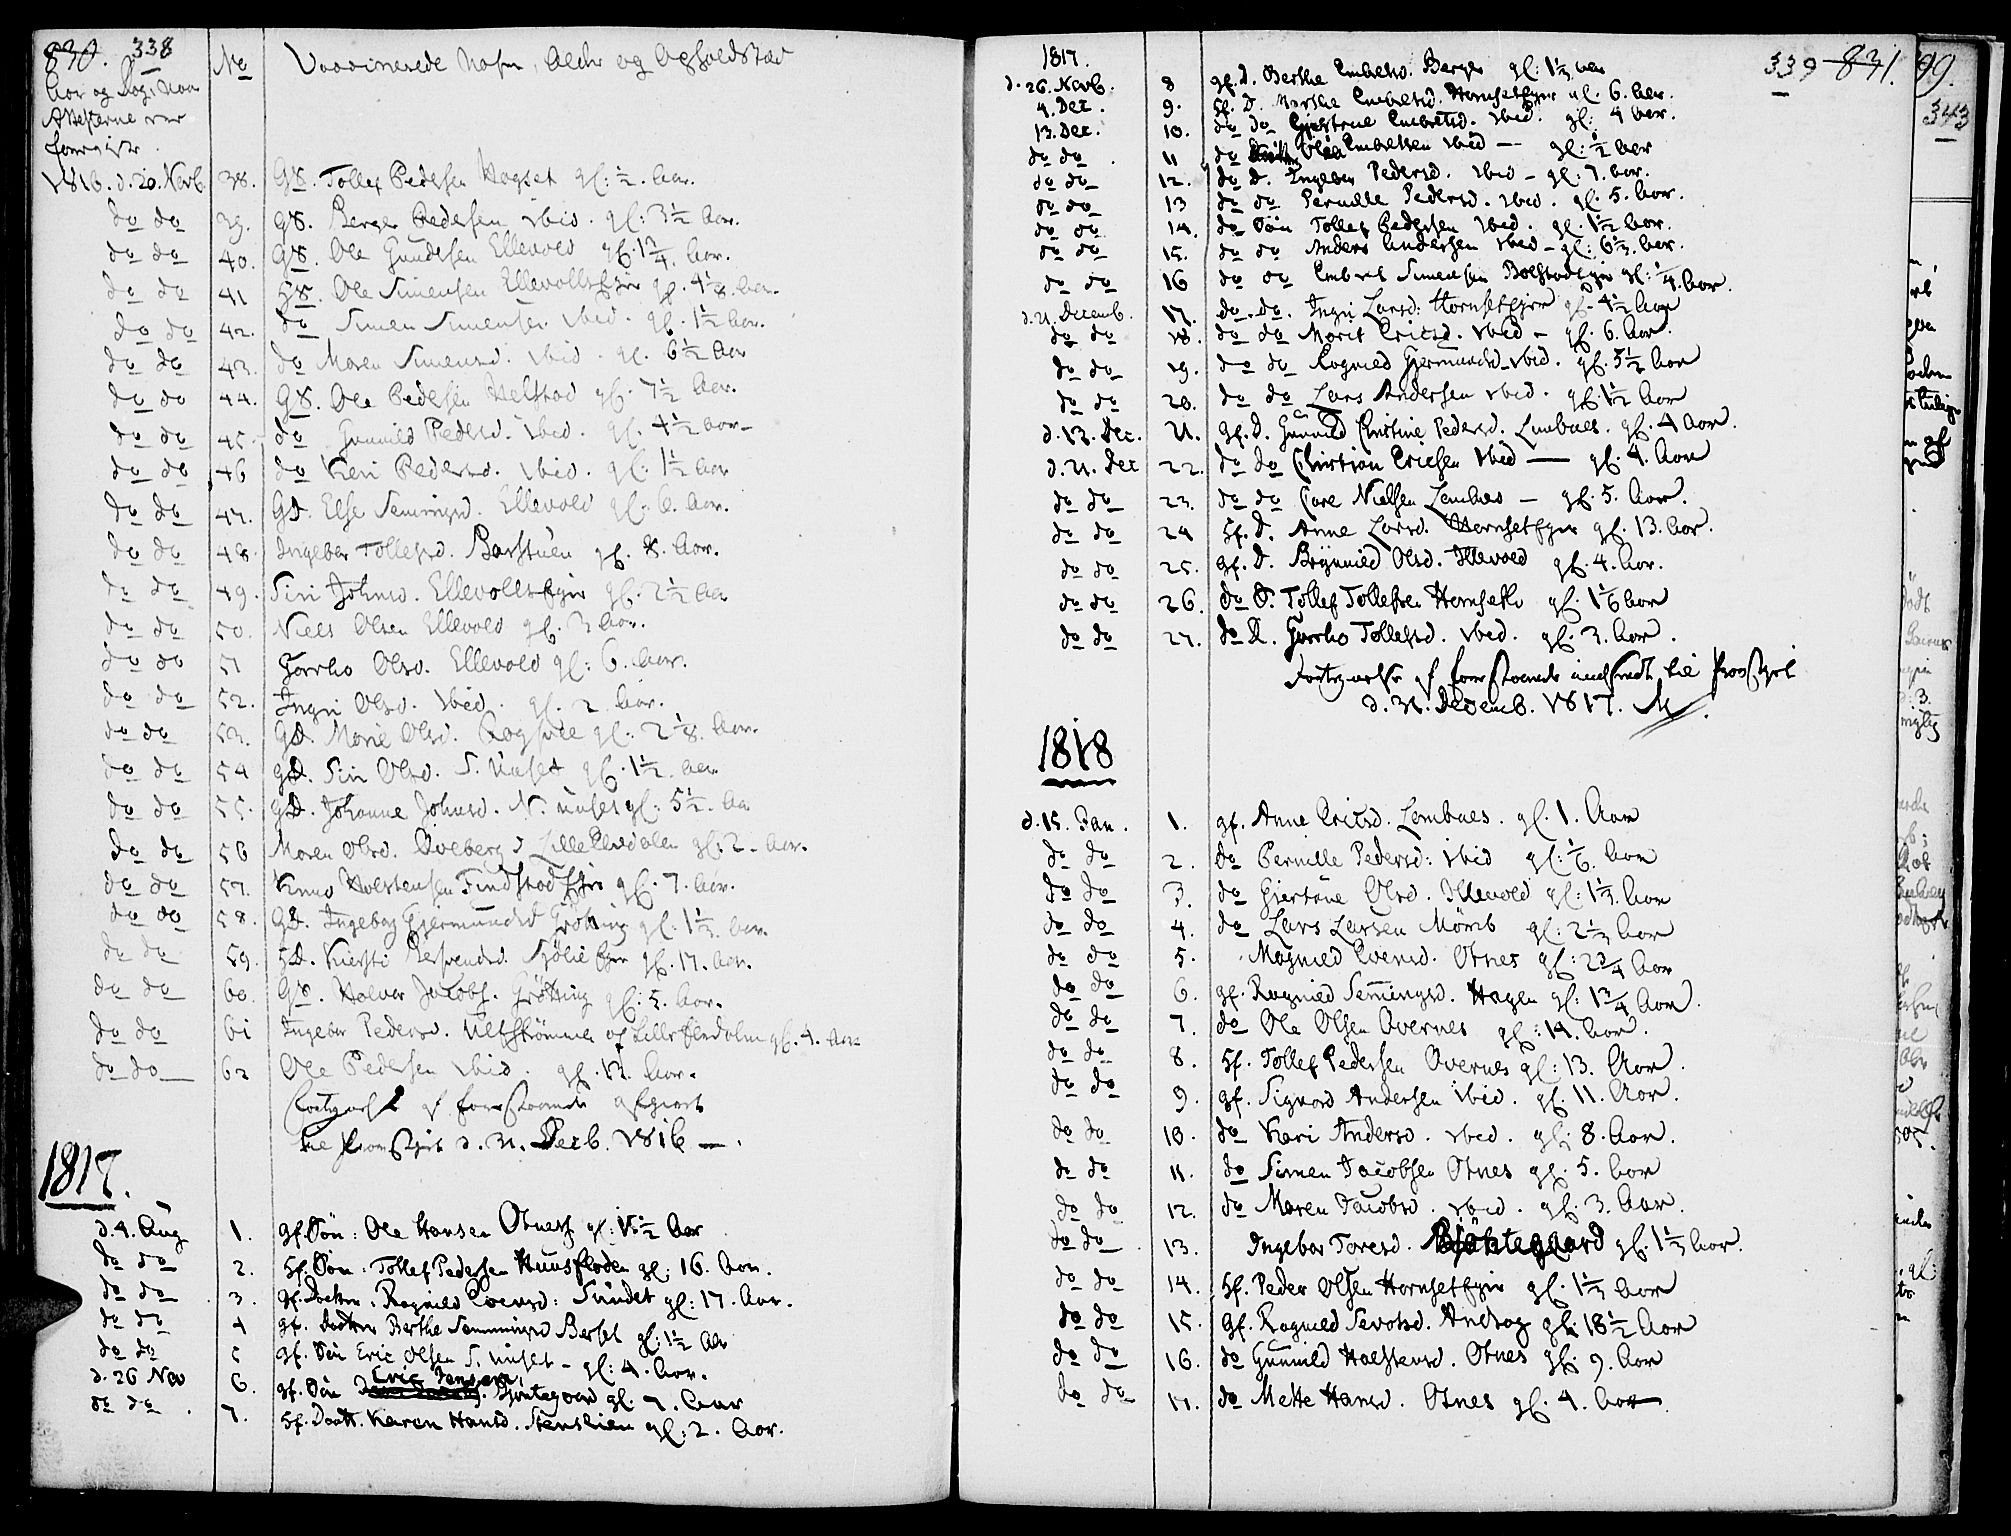 830. 338
Aar og Dag, naar
Attesterne ere
foreviste.
No
Vaccinerede Nafn, Alder og Opholdsted
1816. d. 20. Novb. 38. GS. Tollef Pedersen Hogset gl: ½. Aar.
do do 39. GS. Berger Pedersen ibid. gl: 3½ Aar.
do do 40. GS. Ole Gundesen Ellevold gl. 1¾ Aar.
do do 41 HS. Ole Simensen Ellevoldsejer gl. 4⅛ Aar.
do do 42. do Simen Simensen ibid. gl. 1½ Aar.
do do 43. do Maren Simensd. ibid. gl. 6½ Aar
do do 44. GS. Ole Pedersen Helstad gl. 7½ Aar.
do do 45. do Gunnild Pedersd. ibid. gl. 4½ Aar
do do 46 do Kari Pedersd. ibid. gl: 1½ Aar
do do 47. GD. Else Semingsd. Ellevold gl. 6. Aar.
do do 48. Ingebor Tollefsd. Barstuen gl. 8. Aar.
do do 49. Siri Johnsd. Ellevoldsejer gl. 2½ Aar
do do 50. Niels Olsen Ellevold gl. 3 Aar.
do do 51 Gjorho Olsd. Ellevold gl: 6. Aar.
do do 52. Ingri Olsd. ibid. gl. 2 Aar.
do do 53. GD. Marie Olsd. gl: 2⅛. Aar.
do do 54 GD. Siri Olsd. S. Unset gl. 1½. Aar
do do 55. GD. Johanne Johnsd. N. Unset gl: 5½. Aar
do do 56 Maren Olsd. Öveberg i Lille Elvedalen gl: 2. Aar.
do do 57. Knud Holstensen Findstadejer gl. 7. Aar.
do do 58. GD. Ingebor Gjermundsd Grötting gl: 1⅓. Aar.
do do 59. HD. Kiersti Sjölie Ejer gl. 17. Aar.
do do 60. GS. Halvor Jacobs. Grötting gl: 5. Aar.
do do 61 Ingebor Pedersd. Ulfströmmen af Lille Elvdalen gl. 4. Aar
do do 62 Ole Pedersen ibid. gl. 12. Aar.
Fortegnelse af foerstaaende afgivet
til Provstiet d. 31. Decb. 1816 —.
1817.
d. 4. Aug 1. gf. Sön: Ole Hansen Otnes gl: 15½ Aar
do do 2. Hf. Sön: Tollef Pedersen Huusfloden gl: 16. Aar.
do do 3. gf. Datter. Ragnild Evensd: Sundet gl: 17. Aar.
do do 4 gf. Datter Berthe Semmingsd Berset gl: 1½ Aar
do do 5 gf. Sön Eric Olsen S. Unset - gl: 4. Aar.
d. 26 Nov 6. gf. Sön Eric Jensen, Bjontegaard gl. 7. Aar
do do. 7. Hf. Datt. Karen Hansd. Stenslien gl: 2. Aar.
1817. 339 831.
d. 26. Novb. 8 gf. D. Berthe Embretsd. Berger gl: 1⅓ Aar
4. Dec. 9. Hf. D. Marthe Embretsd. Hornsetejer gl. 6. Aar.
13. Dec. 10. do do Giertrue Embretsd. ibid. gl: 4 Aar.
do do. 11 do Ole Embretsen ibid — gl: ½ Aar
do do 12. do D. Ingebor Pedersd. ibid - gl: 7. Aar.
do do 13 do do Pernille Pedersd. ibid. gl. 5. Aar.
do do 14. do Sön Tollef Pedersen ibid. gl. 1½ Aar.
do do 15. do do Anders Andersen ibid - gl: 6⅓. Aar.
do do 16 do do Embret Simensen Bolstadejer gl: ¼. Aar.
d. 21. Decemb. 17. do. do. Ingri Larsd: Hornsetejer gl. 4½ Aar
do do 18. do do Marit Ericsd. ibid - gl. 6. Aar.
do do 19. do do Ragnild Gjermundsd ibid. gl. 5½ Aar
do do 20. do do Lars Andersen ibid. gl. 1½ Aar
d. 13. Dec. 21. gf. D. Gunnild Christine Pedersd. Lombnes. gl. 4 Aar.
d. 21. Dec 22. do do Christian Ericsen ibid — gl. 4. Aar
do do 23. do do Care Nielsen Lombnes — gl. 5. Aar.
do do 24 Hf. D. Anne Larsd. Hornsetejer gl. 13. Aar.
do do 25. gf. D. Brÿnnild Olsd. Illevold gl. 4. Aar.
do do 26. do S. Tollef Tollefsen Hornseth gl. 1⅙ Aar
do do 27. do D. Gjorho Tollefsd. ibid. gl. 3. Aar.
Fortegnelse af foerstaaende indsendt til Provstiet
d. 31. Decemb. 1817. M
1818
d. 15. Jan. 1. gf. Anne Ericsd. Lombnes. gl. 1. Aar
do do 2. do Pernille Pedersd: ibid gl: ⅙. Aar
do do 3. do Giertrue Olsd. Illevold gl: 1⅓. Aar
do do 4. do Lars Larsen Mömb gl: 2⅓ Aar
do do 5. Magnild Evensd. Otnes gl: 2¾ Aar
do do 6. gf. Ragnild Semmingsd. Hagen gl: 1¾ Aar.
do do 7. do Ole Olsen Overnes gl: 14. Aar.
do do 8. Hf. Tollef Pedersen Overnes gl: 13. Aar.
do do 9. gf. Sigvord Andersen ibid. gl. 11. Aar.
do do 10. do Kari Andersd. ibid. gl. 8. Aar.
do do 11. do Simen Jacobsen Otnes gl. 5. Aar
do do 12. do Maren Jacobsd. ibid. gl. 3. Aar.
do do 13. Ingebor Toresd. Bjöntegaard gl. 1⅓ Aar.
do do 14. Hf. Peder Olsen Hornsetejer gl. 1⅓ Aar
do do 15. gf. Ragnild Sevatsd. Andrag gl. 18½ Aar
do do 16. do Gunnild Halstensd. Otnes gl. 9. Aar
do do 17. do Mette Hansd. Otnes gl. 4. Aar
99.
343